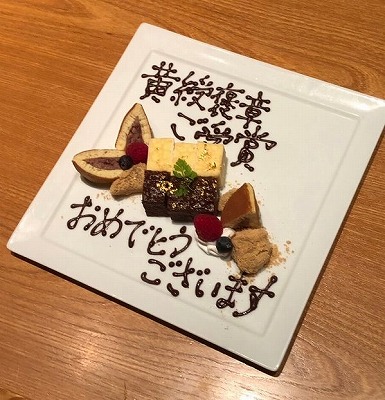 黄綬褒章
ご受賞
おめでとう
ございます